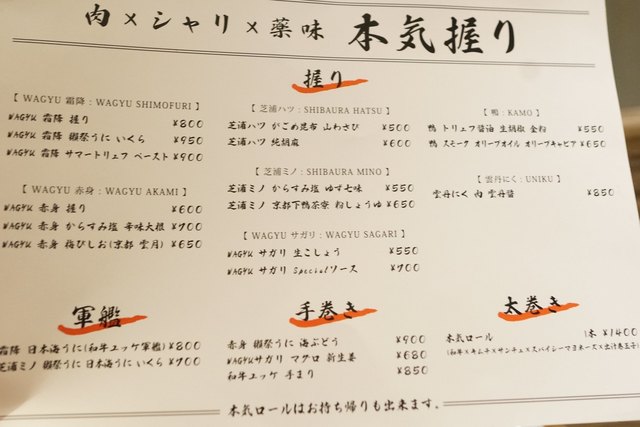 肉×シャリ×薬味 本気握り
握り
【 WAGYU 霜降 : WAGYU SHIMOFURI 】
WAGYU 霜降 握り ¥800
WAGYU 霜降 雲丹うに いくら ¥950
WAGYU 霜降 サマートリュフ ペースト ¥900
【 WAGYU 赤身 : WAGYU AKAMI 】
WAGYU 赤身 握り ¥600
WAGYU 赤身 からすみ塩 辛味大根 ¥700
WAGYU 赤身 梅びしお(京都 雲月) ¥650
【 芝浦ハツ : SHIBAURA HATSU 】
芝浦ハツ がごめ昆布 山わさび ¥500
芝浦ハツ 純胡麻 ¥600
【 芝浦ミノ : SHIBAURA MINO 】
芝浦ミノ からすみ塩 ゆず七味 ¥550
芝浦ミノ 京都下鴨茶寮 粉しょうゆ ¥650
【 WAGYU サガリ : WAGYU SAGARI 】
WAGYU サガリ 生こしょう ¥550
WAGYU サガリ Specialソース ¥700
【 鴨 : KAMO 】
鴨 トリュフ醤油 生胡椒 金粉 ¥550
鴨 スモーク オリーブオイル オリーブキャビア ¥650
【 雲丹にく : UNIKU 】
雲丹にく 肉 雲丹醤 ¥850
軍艦
霜降 日本海うに(和牛ユッケ軍艦) ¥800
芝浦ミノ うに 日本海うに いくら ¥700
手巻き
赤身 うに 海ぶどう ¥900
WAGYUサガリ マグロ 新生姜 ¥680
和牛ユッケ 手まり ¥850
太巻き
本気ロール 1本 ¥1400
(和牛×キムチ×サンチュ×スパイシーマヨネーズ×出汁巻玉子)
本気ロールはお持ち帰りも出来ます。